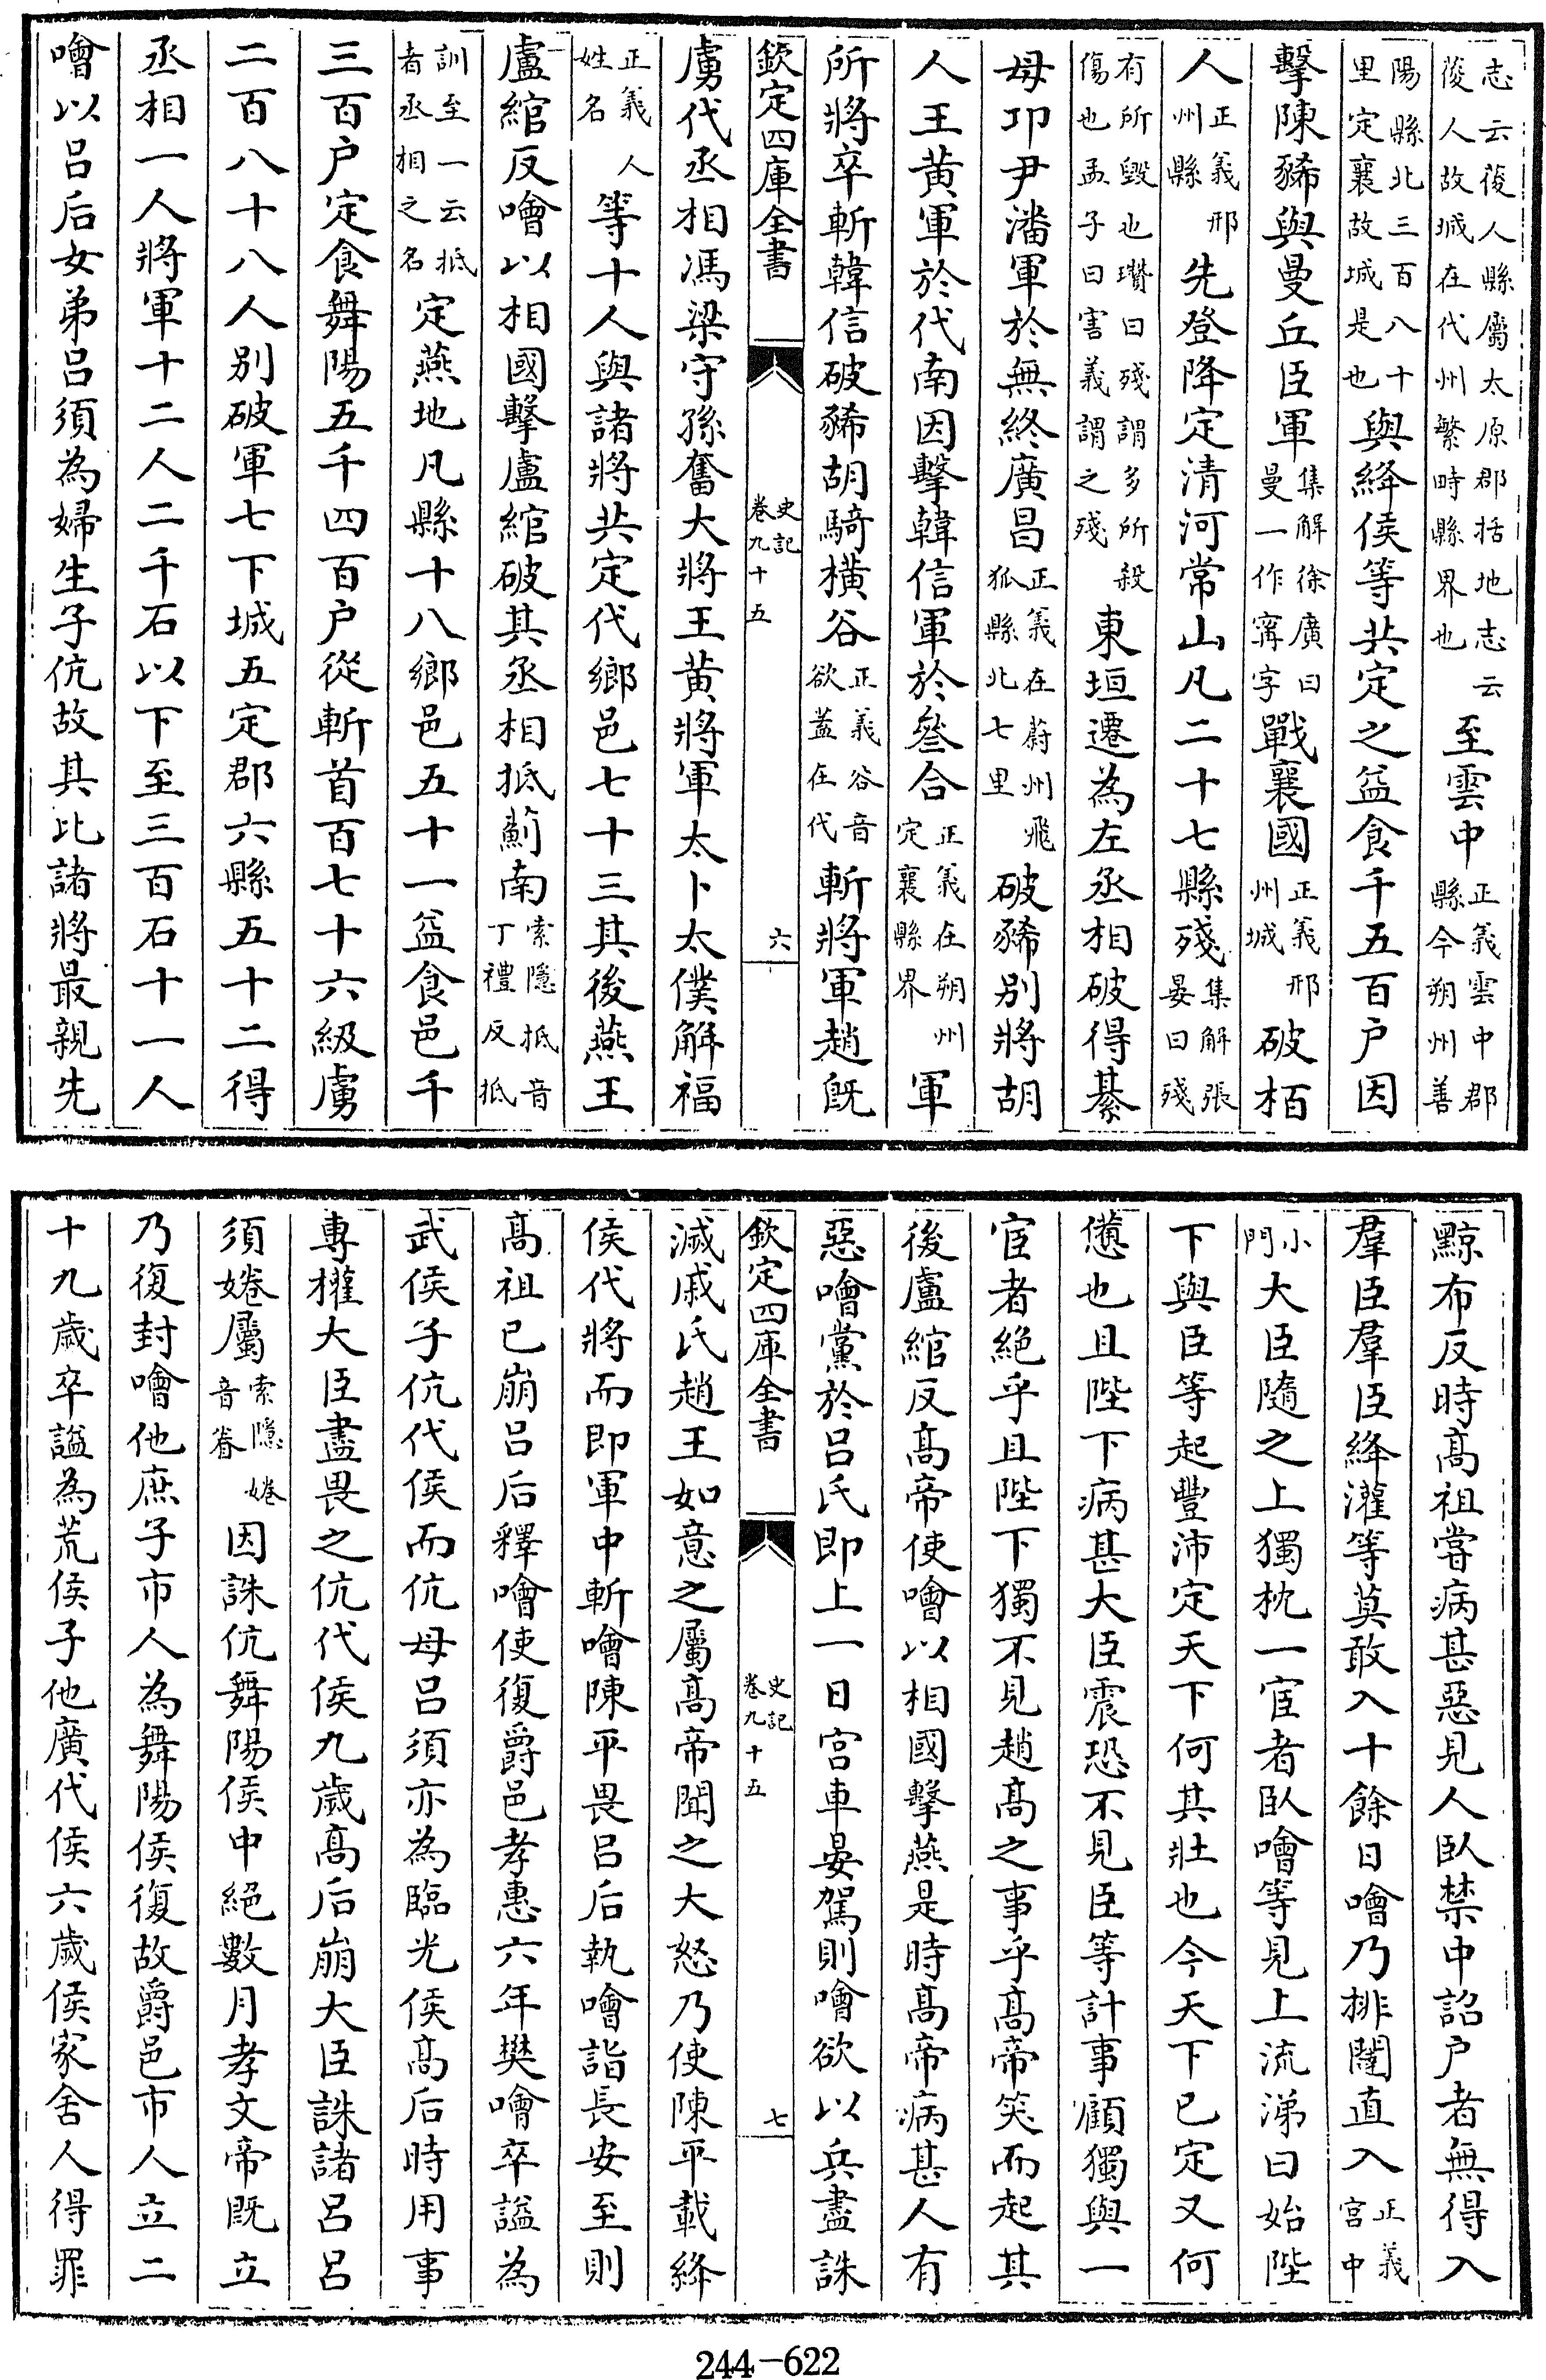 志云葰人縣屬太原郡括地志云葰人故城在代州繁畤縣界也至雲中正義雲中郡縣今朔州善
陽縣北三百八十里定襄故城是也與絳侯等共定之益食千五百户因
擊陳豨與曼丘臣軍集解徐廣曰曼一作甯字戰襄國正義邢州城破栢
人正義邢州縣先登降定清河常山凡二十七縣殘集解張晏曰殘
有所毀也瓚曰殘謂多所殺傷也孟子曰害義謂之殘東垣遷為左丞相破得綦
母卭尹潘軍於無終廣昌正義在蔚州飛狐縣北七里破豨别將胡
人王黄軍於代南因擊韓信軍於叅合正義在朔州定襄縣界軍
所將卒斬韓信破豨胡騎橫谷正義谷音欲蓋在代斬將軍趙既
欽定四庫全書 史記卷九十五 六
虜代丞相馮梁守孫奮大將王黄將軍太卜太僕解福
正義人姓名等十人與諸將共定代鄉邑七十三其後燕王
盧綰反噲以相國擊盧綰破其丞相抵薊南索隱抵音丁禮反抵
訓至一云抵者丞相之名定燕地凡縣十八鄉邑五十一益食邑千
三百户定食舞陽五千四百户從斬首百七十六級虜
二百八十八人别破軍七下城五定郡六縣五十二得
丞相一人將軍十二人二千石以下至三百石十一人
噲以呂后女弟呂須為婦生子伉故其比諸將最親先
黥布反時髙祖嘗病甚惡見人臥禁中詔户者無得入
羣臣羣臣絳灌等莫敢入十餘日噲乃排闥直入正義宫中
小門大臣隨之上獨枕一宦者臥噲等見上流涕曰始陛
下與臣等起豐沛定天下何其壯也今天下已定又何
憊也且陛下病甚大臣震恐不見臣等計事顧獨與一
宦者絕乎且陛下獨不見趙髙之事乎髙帝笑而起其
後盧綰反髙帝使噲以相國擊燕是時髙帝病甚人有
惡噲黨於呂氏即上一日宫車晏駕則噲欲以兵盡誅
欽定四庫全書 史記卷九十五 七
滅戚氏趙王如意之屬髙帝聞之大怒乃使陳平載絳
侯代將而即軍中斬噲陳平畏呂后執噲詣長安至則
髙祖已崩呂后釋噲使復爵邑孝惠六年樊噲卒諡為
武侯子伉代侯而伉母呂須亦為臨光侯髙后時用事
專權大臣盡畏之伉代侯九歲髙后崩大臣誅諸呂呂
須婘屬索隱婘音眷因誅伉舞陽侯中絕數月孝文帝既立
乃復封噲他庶子市人為舞陽侯復故爵邑市人立二
十九歲卒諡為荒侯子他廣代侯六歲侯家舍人得罪
244-622